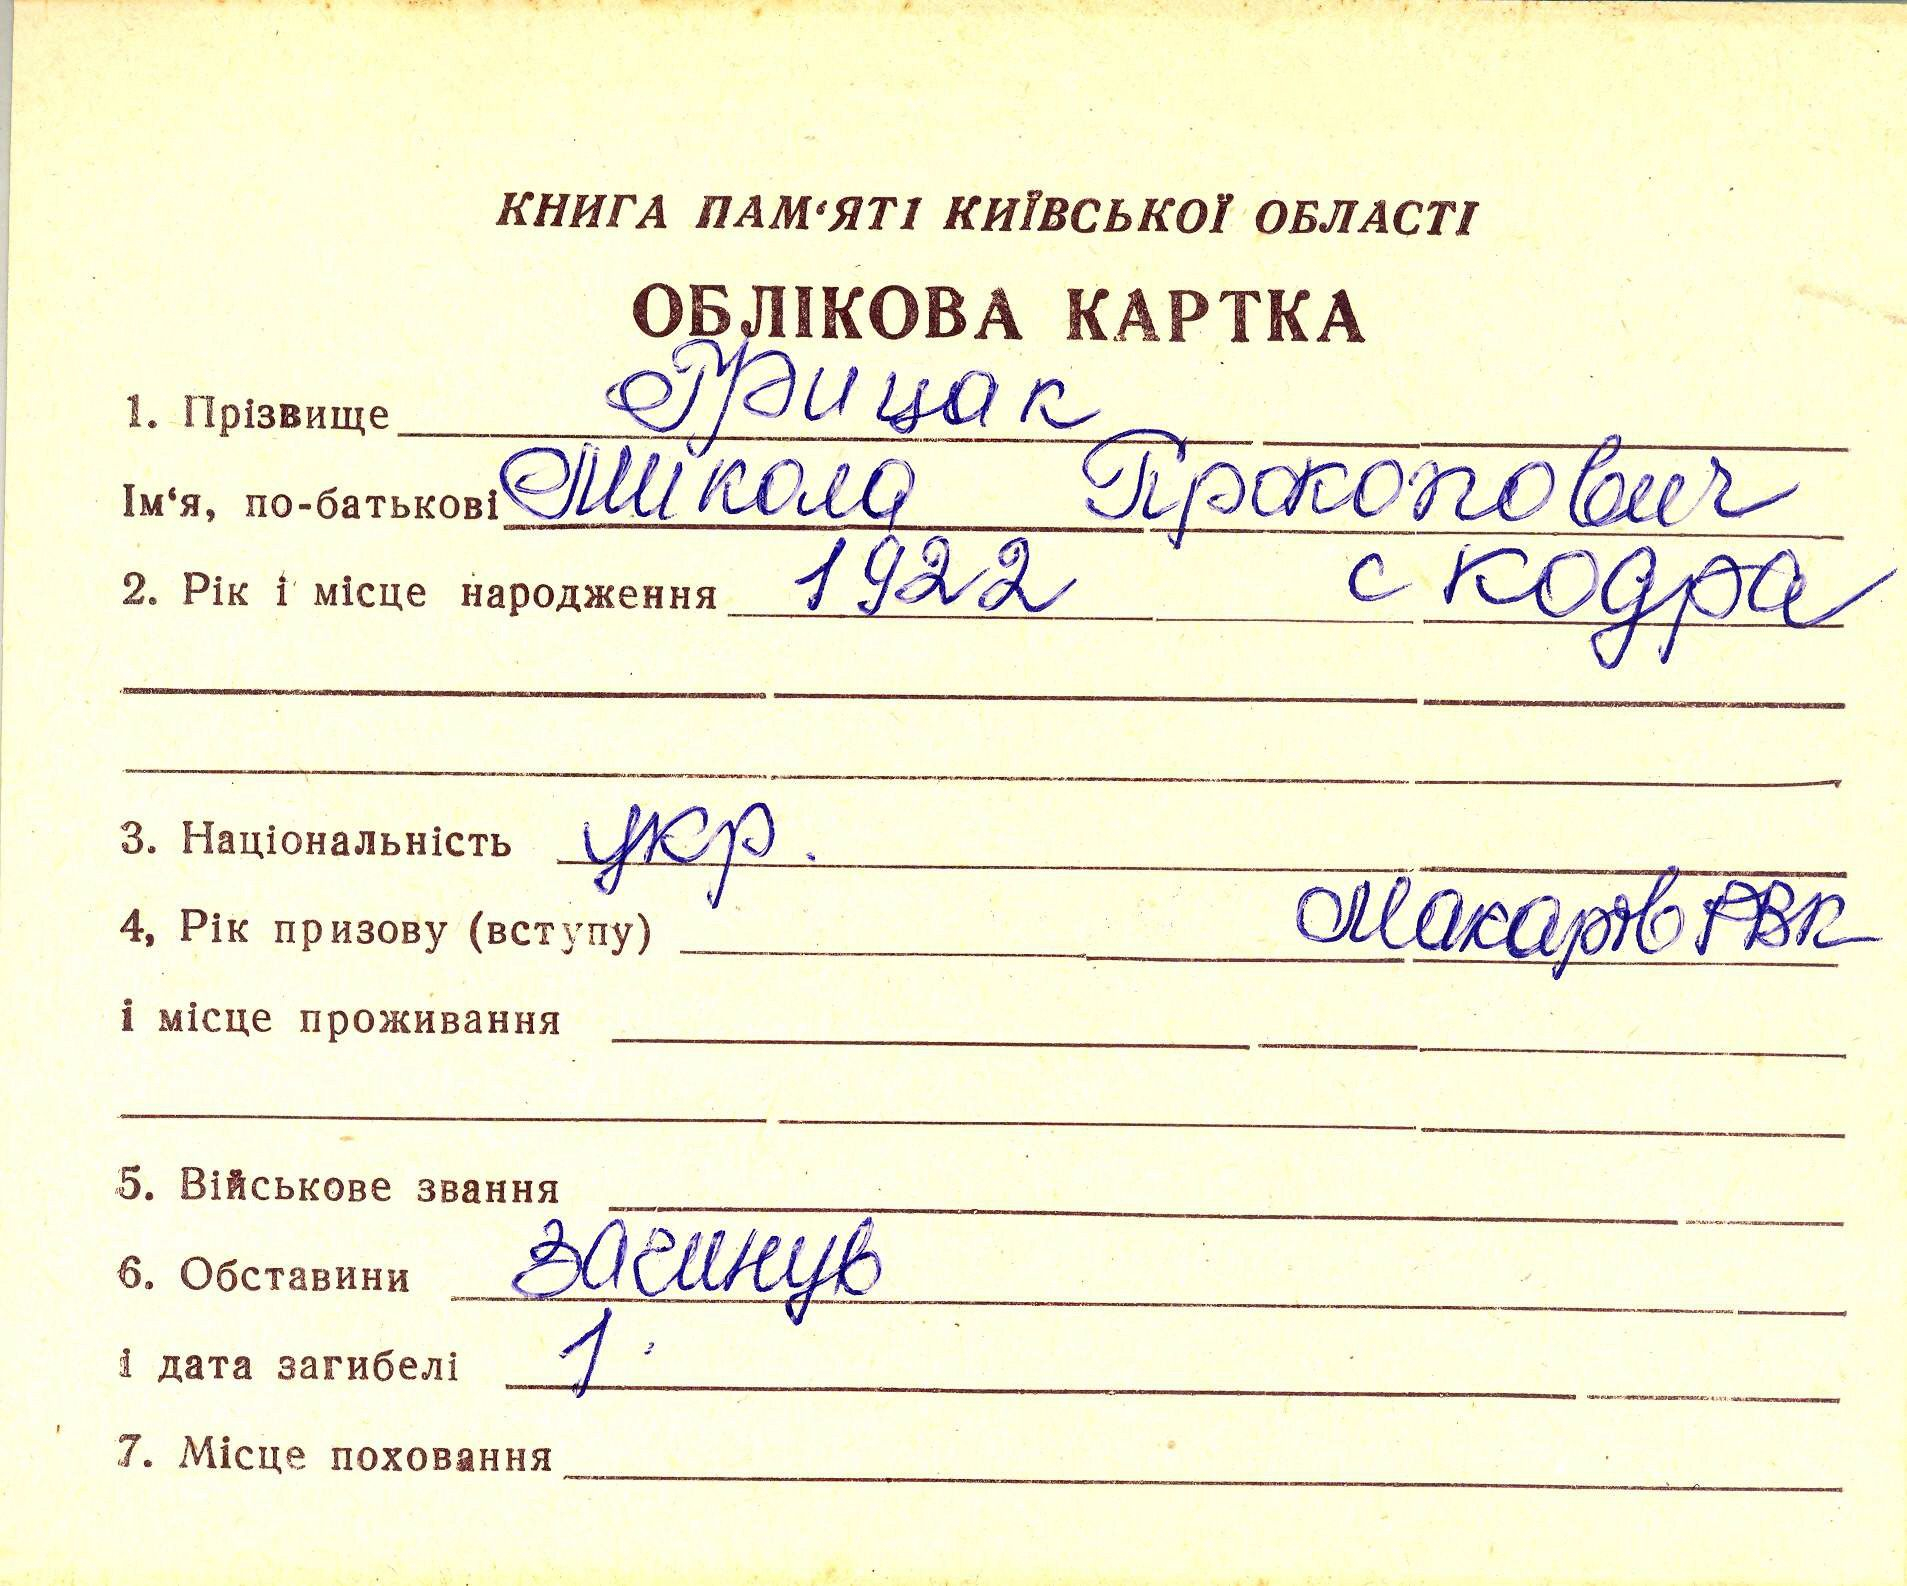 КНИГА ПАМ‘ЯТІ КИЇВСЬКОЇ ОБЛАСТІ
ОБЛІКОВА КАРТКА
1. Прізвище Грицак
Ім‘я, по-батькові Микола Прокопович
2. Рік і місце народження 1922 с Кодра
3. Національність укр.
4, Рік призову (вступу) Макарів РВК
і місце проживання
5. Військове звання
6. Обставини загинув
і дата загибелі 1.
7. Місце поховання